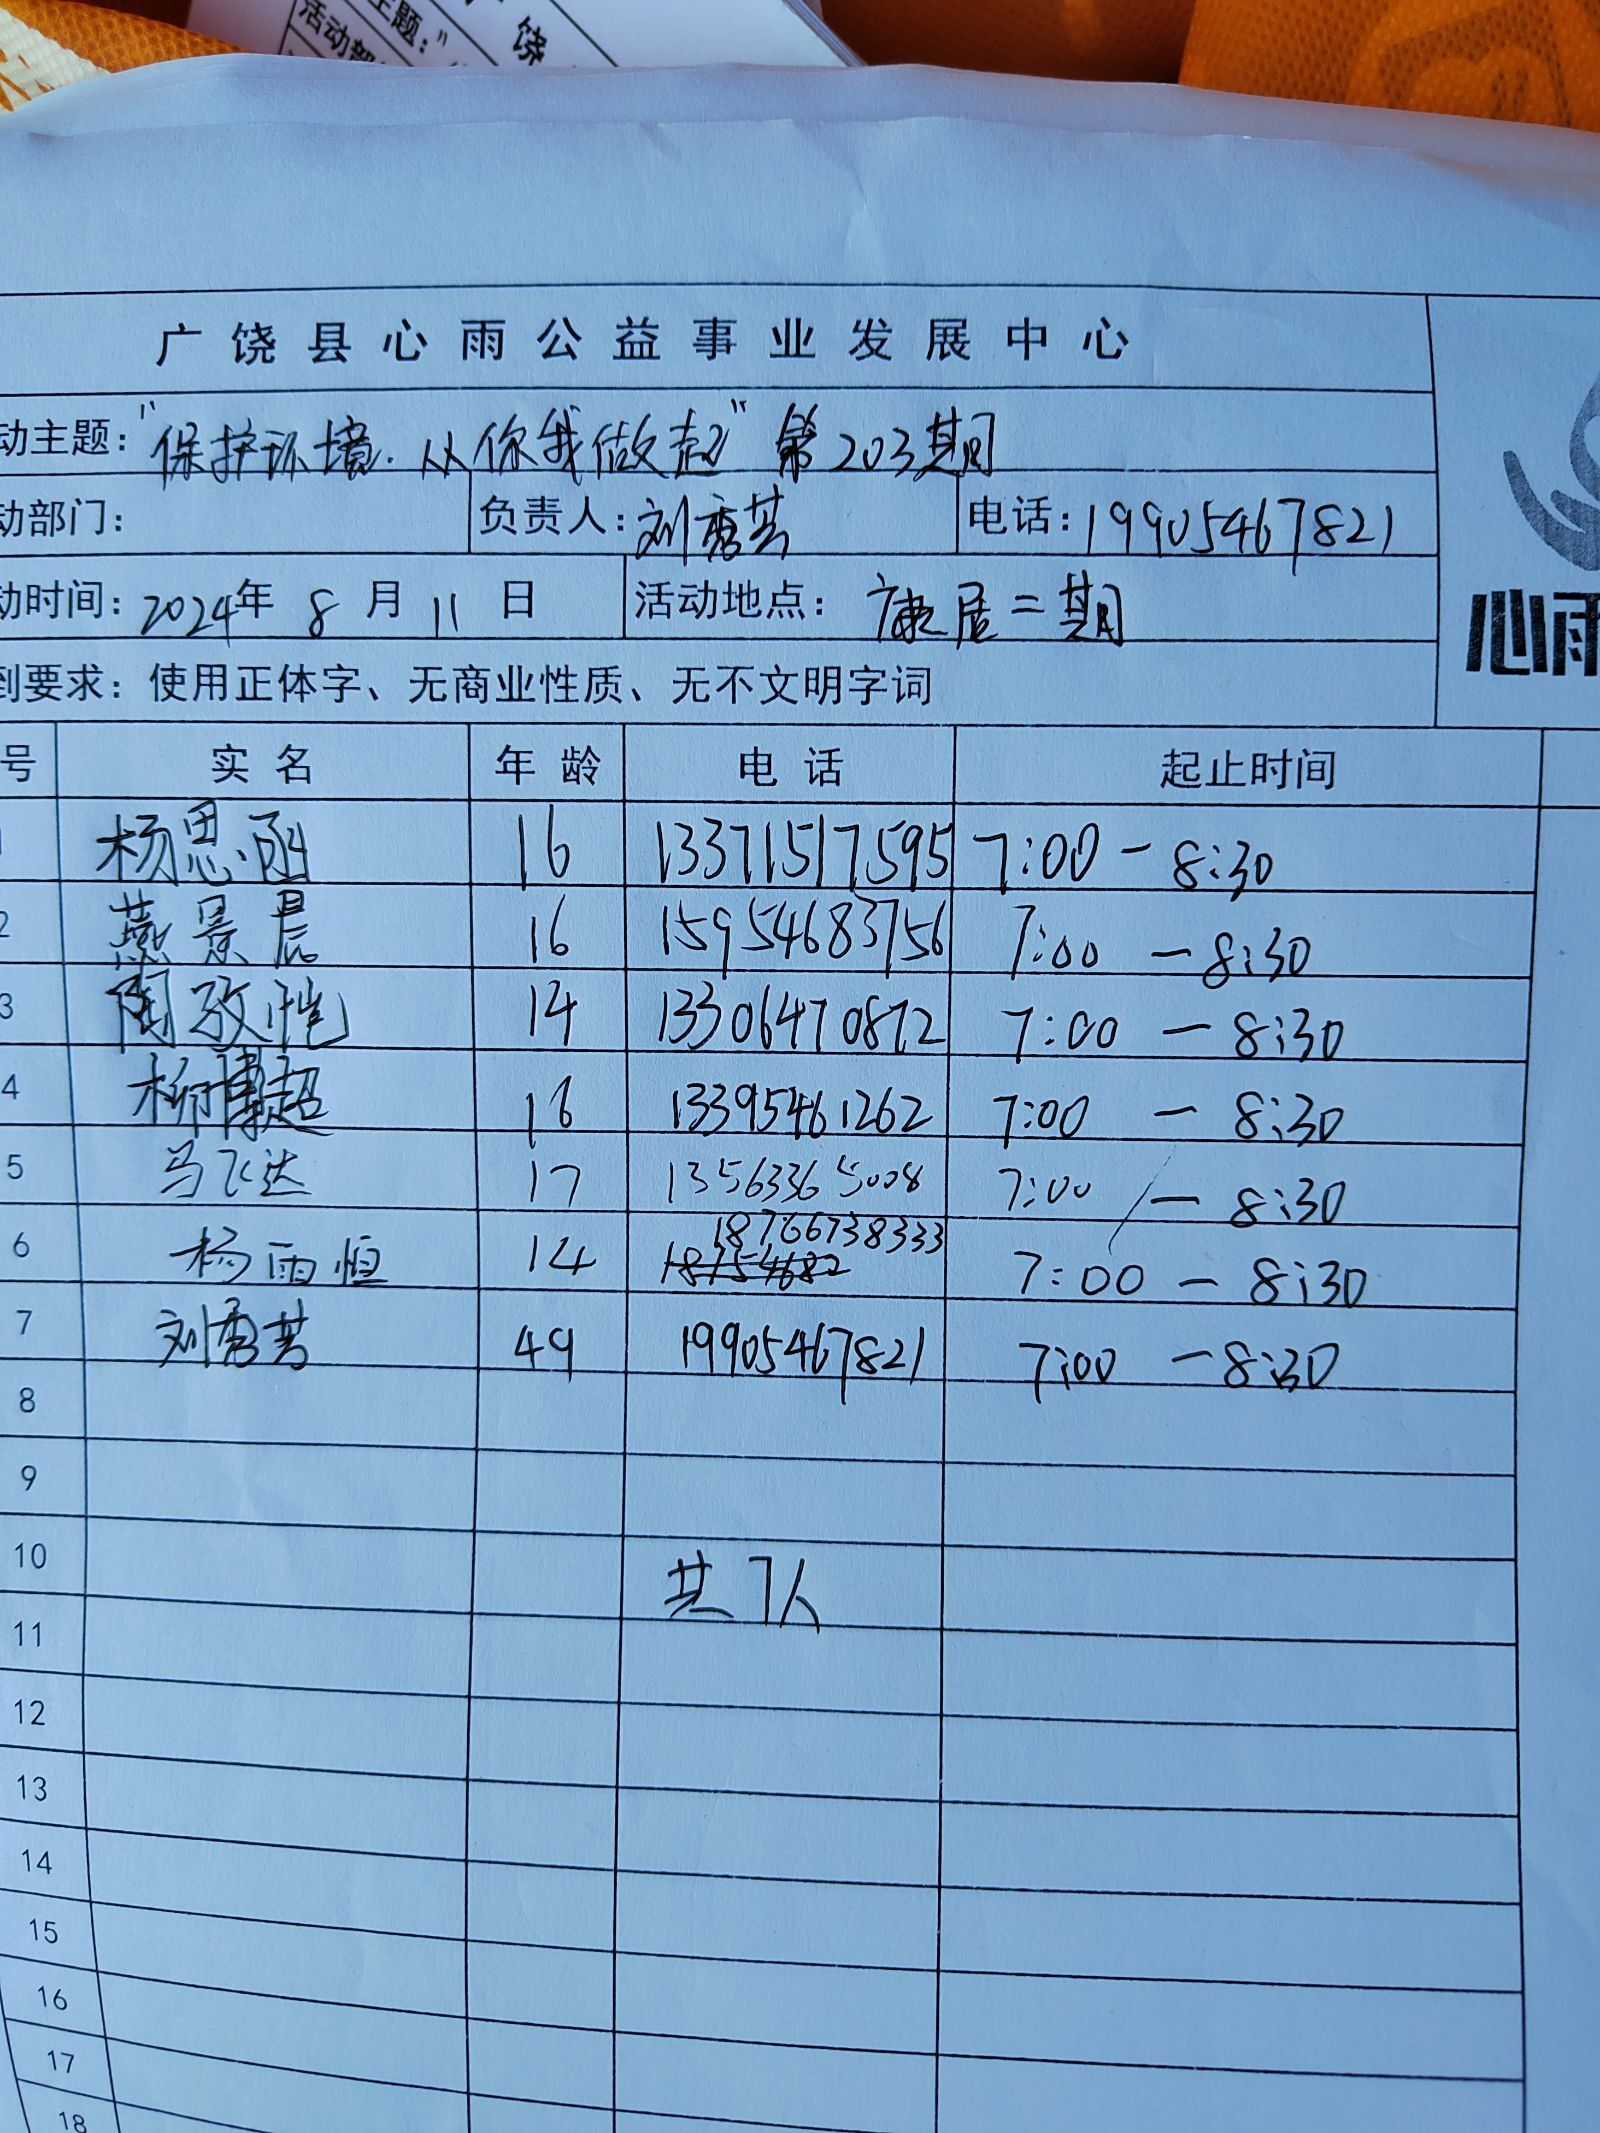 主题："
饶
活动部
广饶县心雨公益事业发展中心
动主题："保护环境.从你我做起"第203期
动部门： 负责人：刘秀芸 电话：19905467821
动时间：2024年 8 月 11 日 活动地点：康居二期
心雨
到要求：使用正体字、无商业性质、无不文明字词
号 实名 年龄 电话 起止时间
1 杨思函 16 13371517595 7:00-8:30
2 燕景晨 16 15954683756 7:00-8:30
3 周致恺 14 13306470872 7:00-8:30
4 柳博超 16 13395461262 7:00-8:30
5 马飞达 17 13563365008 7:00-8:30
6 杨雨恒 14 18766738333 7:00-8:30
7 刘秀芸 49 19905467821 7:00-8:30
8
9
10 共7人
11
12
13
14
15
16
17
18